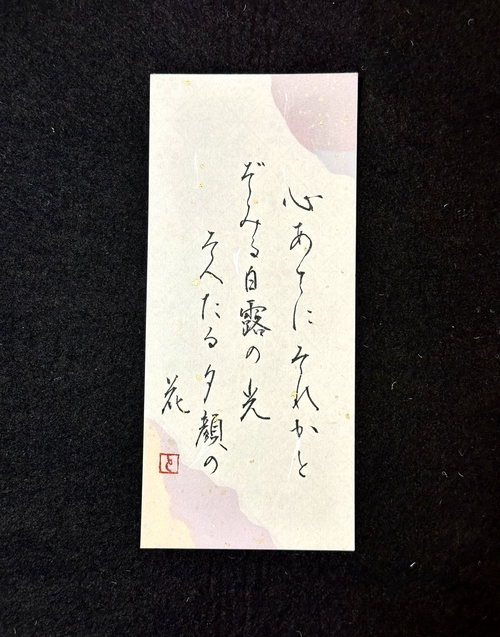 心あてにそれかと
ぞみる白露の光
そへたる夕顔の
花
と